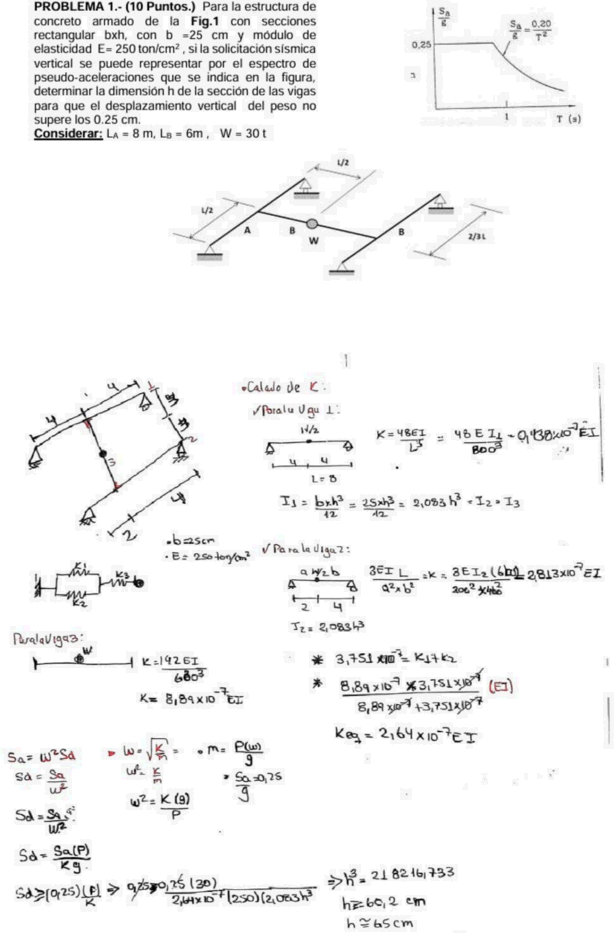 PROBLEMA 1.- (10 Puntos.) Para la estructura de
concreto armado de la Fig.1 con secciones
rectangular bxh, con b =25 cm y módulo de
elasticidad E= 250 ton/cm² , si la solicitación sísmica
vertical se puede representar por el espectro de
pseudo-aceleraciones que se indica en la figura,
determinar la dimensión h de la sección de las vigas
para que el desplazamiento vertical del peso no
supere los 0.25 cm.
Considerar: LA = 8 m, LB = 6m , W = 30 t
Sa/g
Sa/g = 0,20/T²
0,25
1
T (s)
L/2
L/2
A
B
W
B
2/3L
4
4
1
3
2
4
2
•b=25cm
•E= 250 ton/cm²
•Calculo de K:
✓Para la Viga 1:
W/2
4 4
L=8
K=48EI/L³ = 48 E I1/800³ = 0,938x10⁻⁷EI
I1= bxh³/12 = 25xh³/12 = 2,083h³ = I2 = I3
✓Para la Viga2:
a W/2 b
2 4
3EI L/a²xb² =K= 3EI2(600)/200²x400² = 2,813x10⁻⁷EI
I2= 2,083h³
K1
K2
K3
Para la Viga3:
W
K=192EI/600³
K= 8,89x10⁻⁷EI
* 3,751x10⁻⁷= K1+K2
* 8,89x10⁻⁷x3,751x10⁻⁷/8,89x10⁻⁷+3,751x10⁻⁷ (EI)
Keq = 2,64x10⁻⁷EI
Sa= W²Sd
Sd = Sa/W²
W=√K/m =
W²= K/m
W²=K(g)/P
•m= P(W)/g
• Sa/g=0,25
Sd=Sa/W²
Sd= Sa(P)/Kg
Sd≥(0,25)(P)/K ⇒ 0,25≥0,25(30)/2,64x10⁻⁷(250)(2,083h³ ⇒h³= 218216,733
h≥60,2 cm
h≅65cm